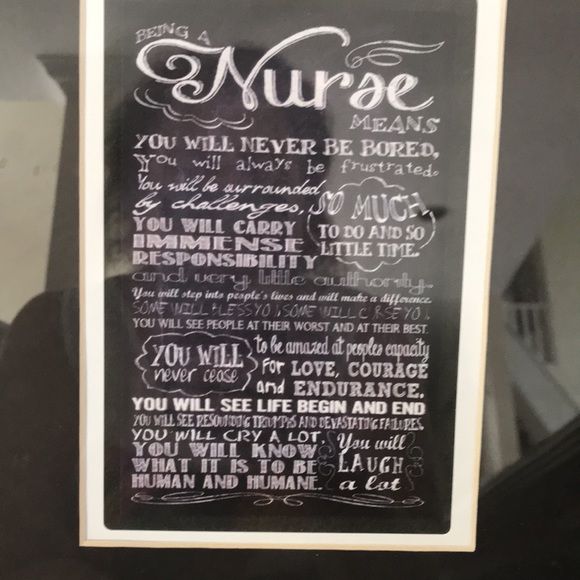 BEING A
Nurse
MEANS
YOU WILL NEVER BE BORED,
You will always be frustrated.
You will be surrounded
by challenges,
SO MUCH
TO DO AND SO
LITTLE TIME.
YOU WILL CARRY
IMMENSE
RESPONSIBILITY
and very little authority.
You will step into people's lives and will make a difference.
SOME WILL BLESS YOU SOME WILL CURSE YOU
YOU WILL SEE PEOPLE AT THEIR WORST AND AT THEIR BEST.
YOU WILL
never cease
to be amazed at peoples capacity
FOR LOVE, COURAGE
and ENDURANCE.
YOU WILL SEE LIFE BEGIN AND END
YOU WILL SEE RESOUNDING TRIUMPHS AND DEVASTATING FAILURES.
YOU WILL CRY A LOT.
YOU WILL KNOW
WHAT IT IS TO BE
HUMAN AND HUMANE.
You will
LAUGH
a lot